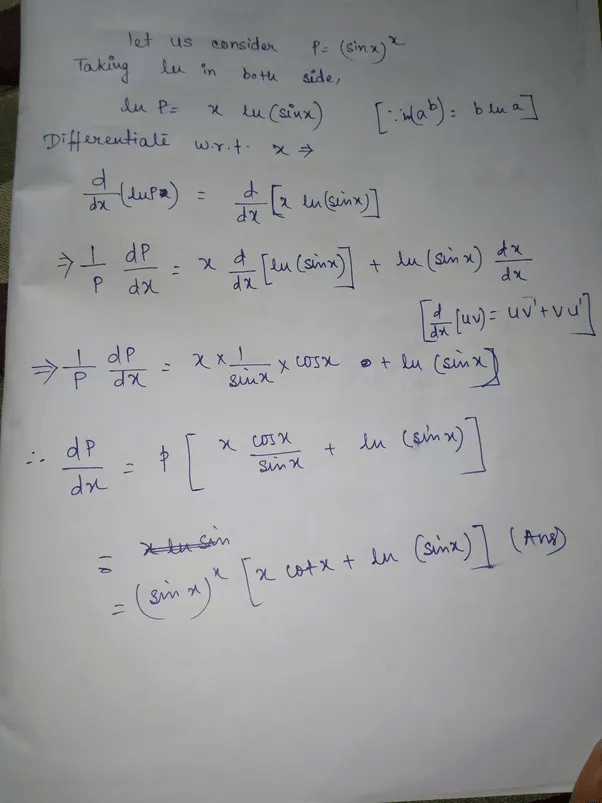 let us consider P= (sinx)^x
Taking ln in both side,
ln P= x ln(sinx) [∵ ln(a^b)= b ln a]
Differentiate w.r.t. x ⇒
d/dx (lnP) = d/dx [x ln(sinx)]
⇒ 1/P dP/dx = x d/dx [ln(sinx)] + ln(sinx) dx/dx
[d/dx [uv]= uv'+vu']
⇒ 1/P dP/dx = x × 1/sinx × cosx + ln (sinx)]
∴ dP/dx = P [ x cosx/sinx + ln (sinx)]
= x ln sin
= (sinx)^x [x cotx + ln (sinx)] (Ans)